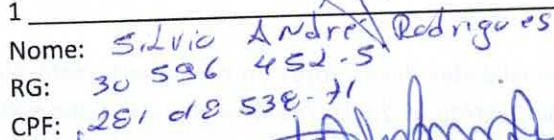 1
Nome: Silvio André Rodrigues
RG: 30 596 452-5
CPF: 281 018 538-71